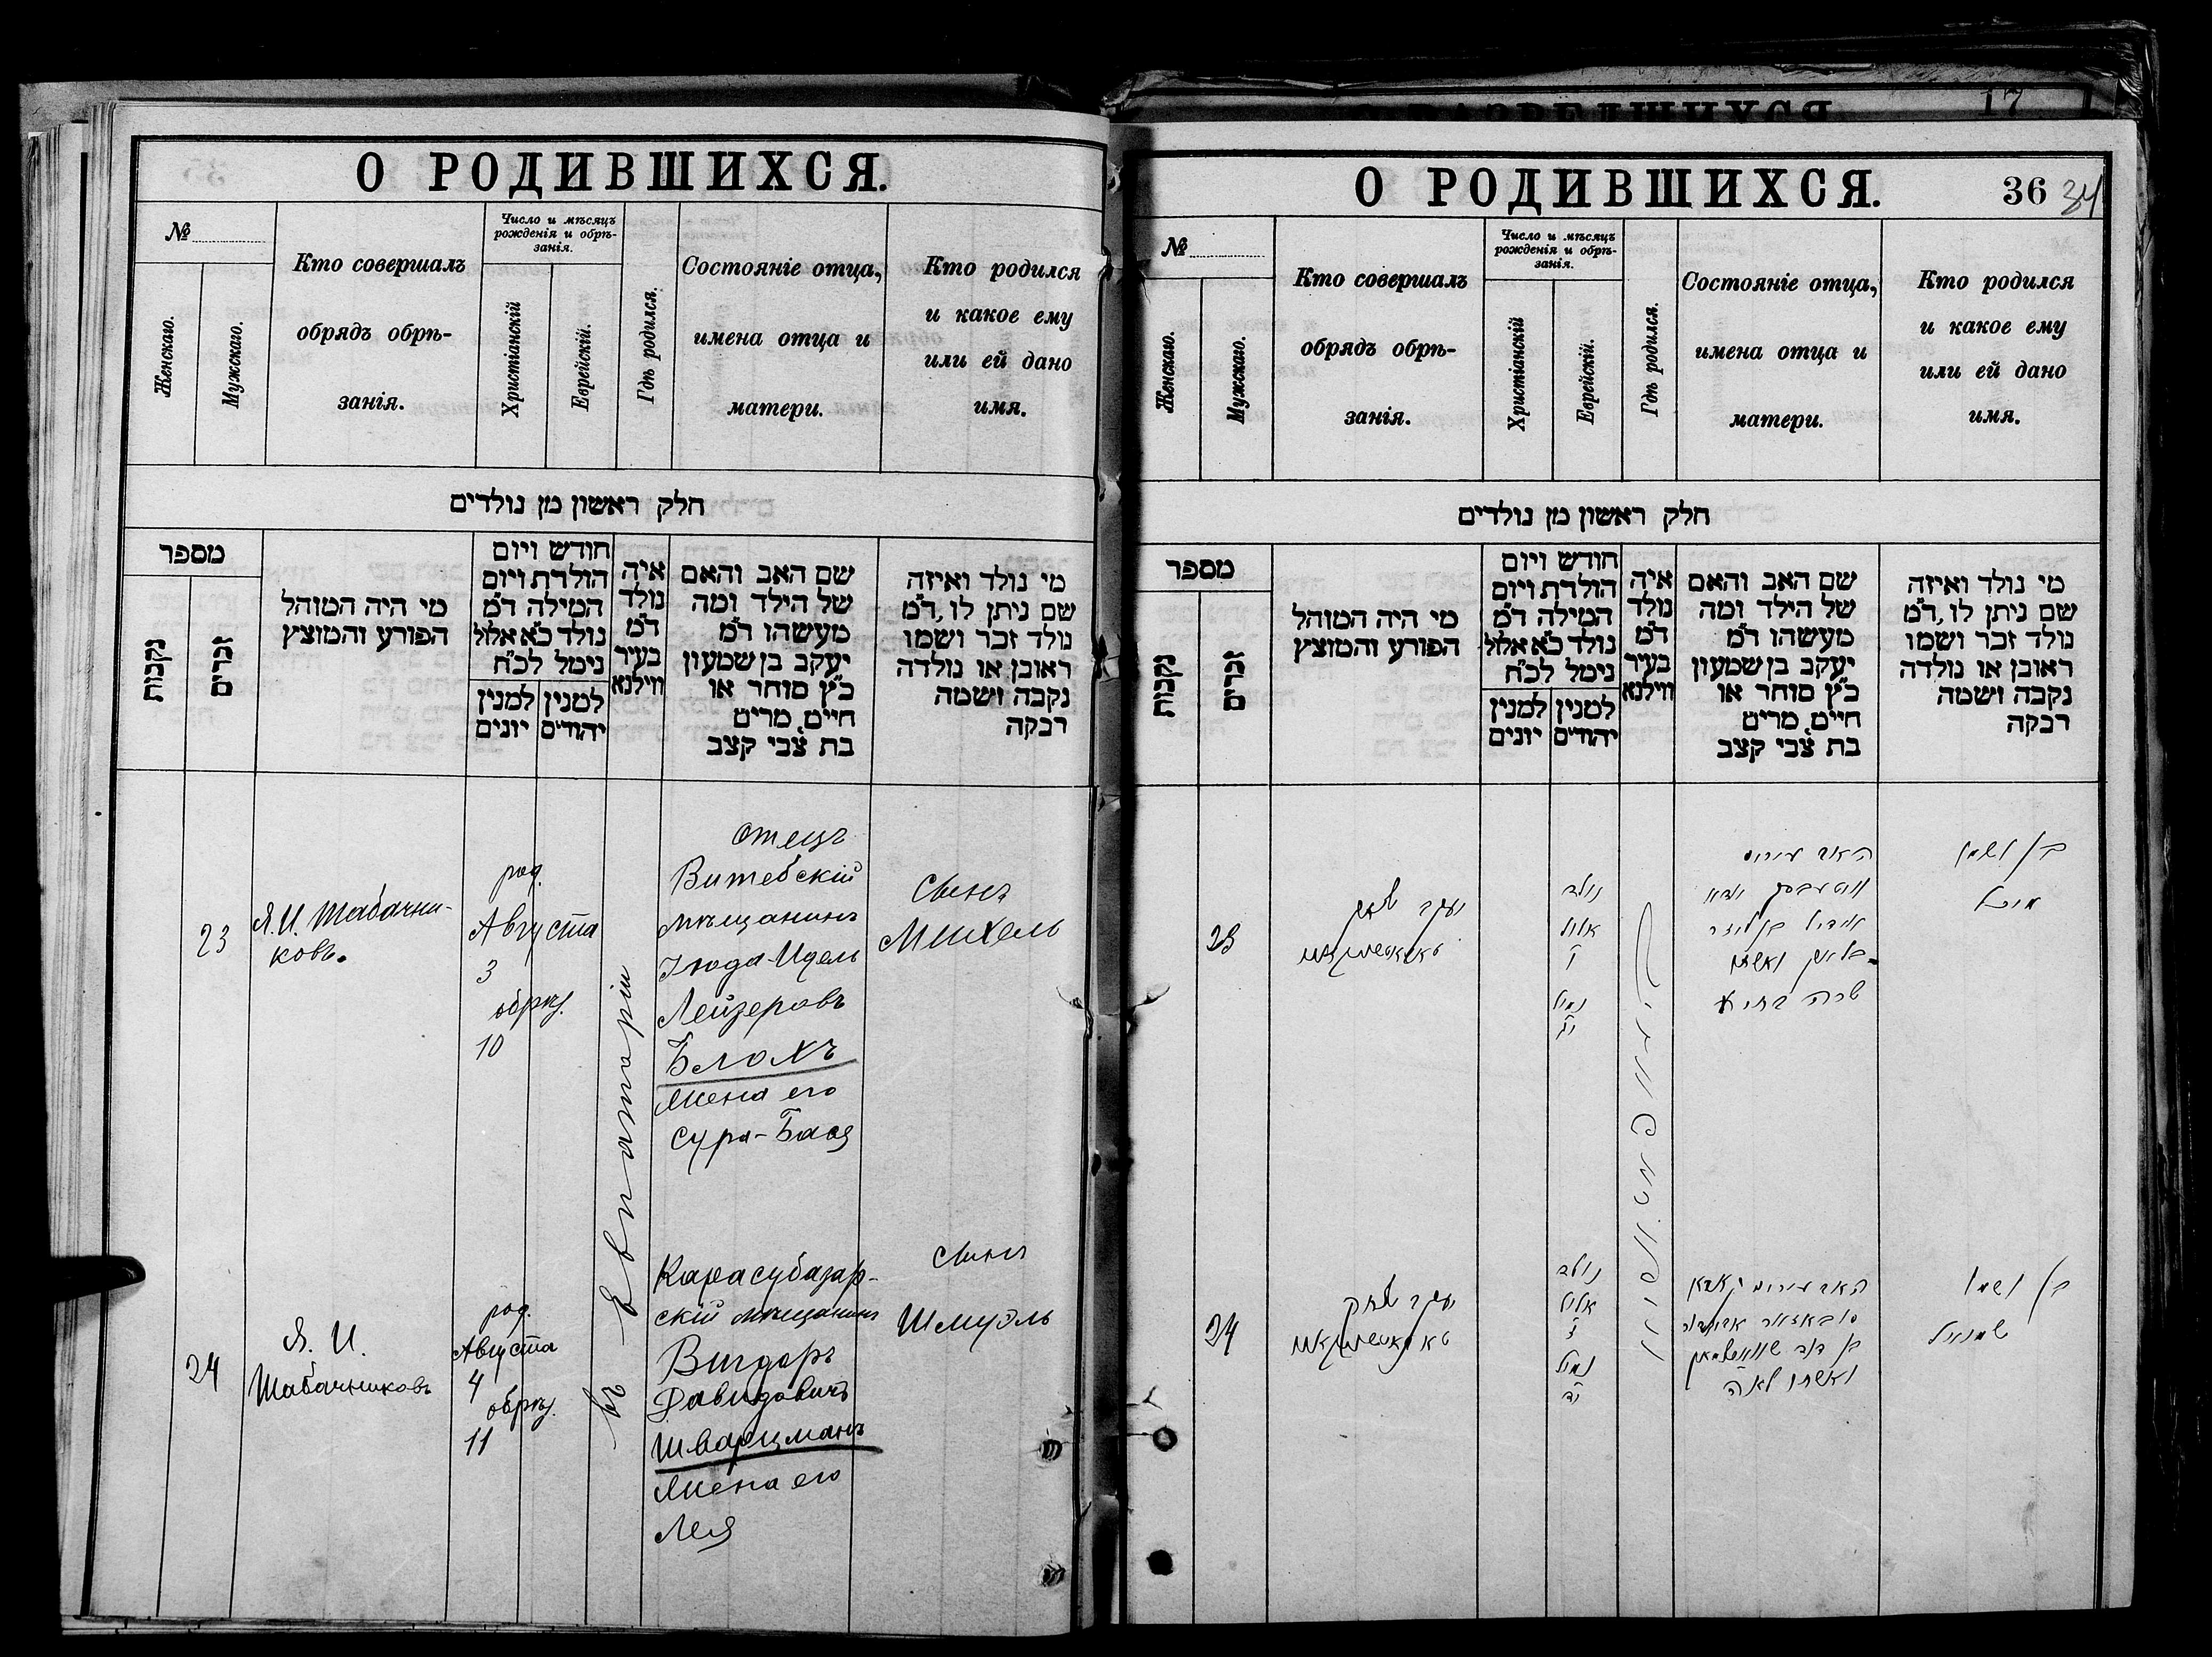 О РОДИВШИХСЯ.
№
Женскаго.
Мужскаго.
Кто совершалъ
обрядъ обрѣ-
занія.
Число и мѣсяцъ
рожденія и обрѣ-
занія.
Христіанскій
Еврейскій.
Гдѣ родился.
Состояніе отца,
имена отца и
матери.
Кто родился
и какое ему
или ей дано
имя.
חלק ראשון מן נולדים
מספר
נקבות
זכרים
מי היה המוהל
הפורע והמוצץ
חודש ויום
הולדת ויום
המילה ד״מ
נולד כ״א אלול
נימל לכ״ח
למנין למנין
יהודים יונים
איה
נולד
ד״מ
בעיר
ווילנא
שם האב והאם
של הילד ומה
מעשהו ד״מ
יעקב בן שמעון
כ״ץ סוחר או
חיים, מרים
בת צבי קצב
מי נולד ואיזה
שם ניתן לו, ד״מ
נולד זכר ושמו
ראובן או נולדה
נקבה ושמה
רבקה
23
Я. И. Шабачни-
ковъ.
род.
Августа
3
обрѣз.
10
въ Евпаторіи
отецъ
Витебскій
мѣщанинъ
Іюда-Идель
Лейзеровъ
Блохъ
жена его
Сура-Бася
Сынъ
Михель
24
Я. И.
Шабачниковъ
род.
Августа
4
обрѣз.
11
Карасубазар-
скій мѣщанинъ
Вигдоръ
Давидовичъ
Шварцманъ
жена его
Лея
Сынъ
Шмуэль
17
О РОДИВШИХСЯ.
36 34
№
Женскаго.
Мужскаго.
Кто совершалъ
обрядъ обрѣ-
занія.
Число и мѣсяцъ
рожденія и обрѣ-
занія.
Христіанскій
Еврейскій.
Гдѣ родился.
Состояніе отца,
имена отца и
матери.
Кто родился
и какое ему
или ей дано
имя.
חלק ראשון מן נולדים
מספר
נקבות
זכרים
מי היה המוהל
הפורע והמוצץ
חודש ויום
הולדת ויום
המילה ד״מ
נולד כ״א אלול
נימל לכ״ח
למנין למנין
יהודים יונים
איה
נולד
ד״מ
בעיר
ווילנא
שם האב והאם
של הילד ומה
מעשהו ד״מ
יעקב בן שמעון
כ״ץ סוחר או
חיים, מרים
בת צבי קצב
מי נולד ואיזה
שם ניתן לו, ד״מ
נולד זכר ושמו
ראובן או נולדה
נקבה ושמה
רבקה
23
יעקב יצחק
נולד
אלול
ו
נמול
יג
האב
בן ושמו
מיכל
24
יעקב יצחק
נולד
אלול
ז
נמול
יד
בן דוד
ואשתו לאה
בן ושמו
שמואל